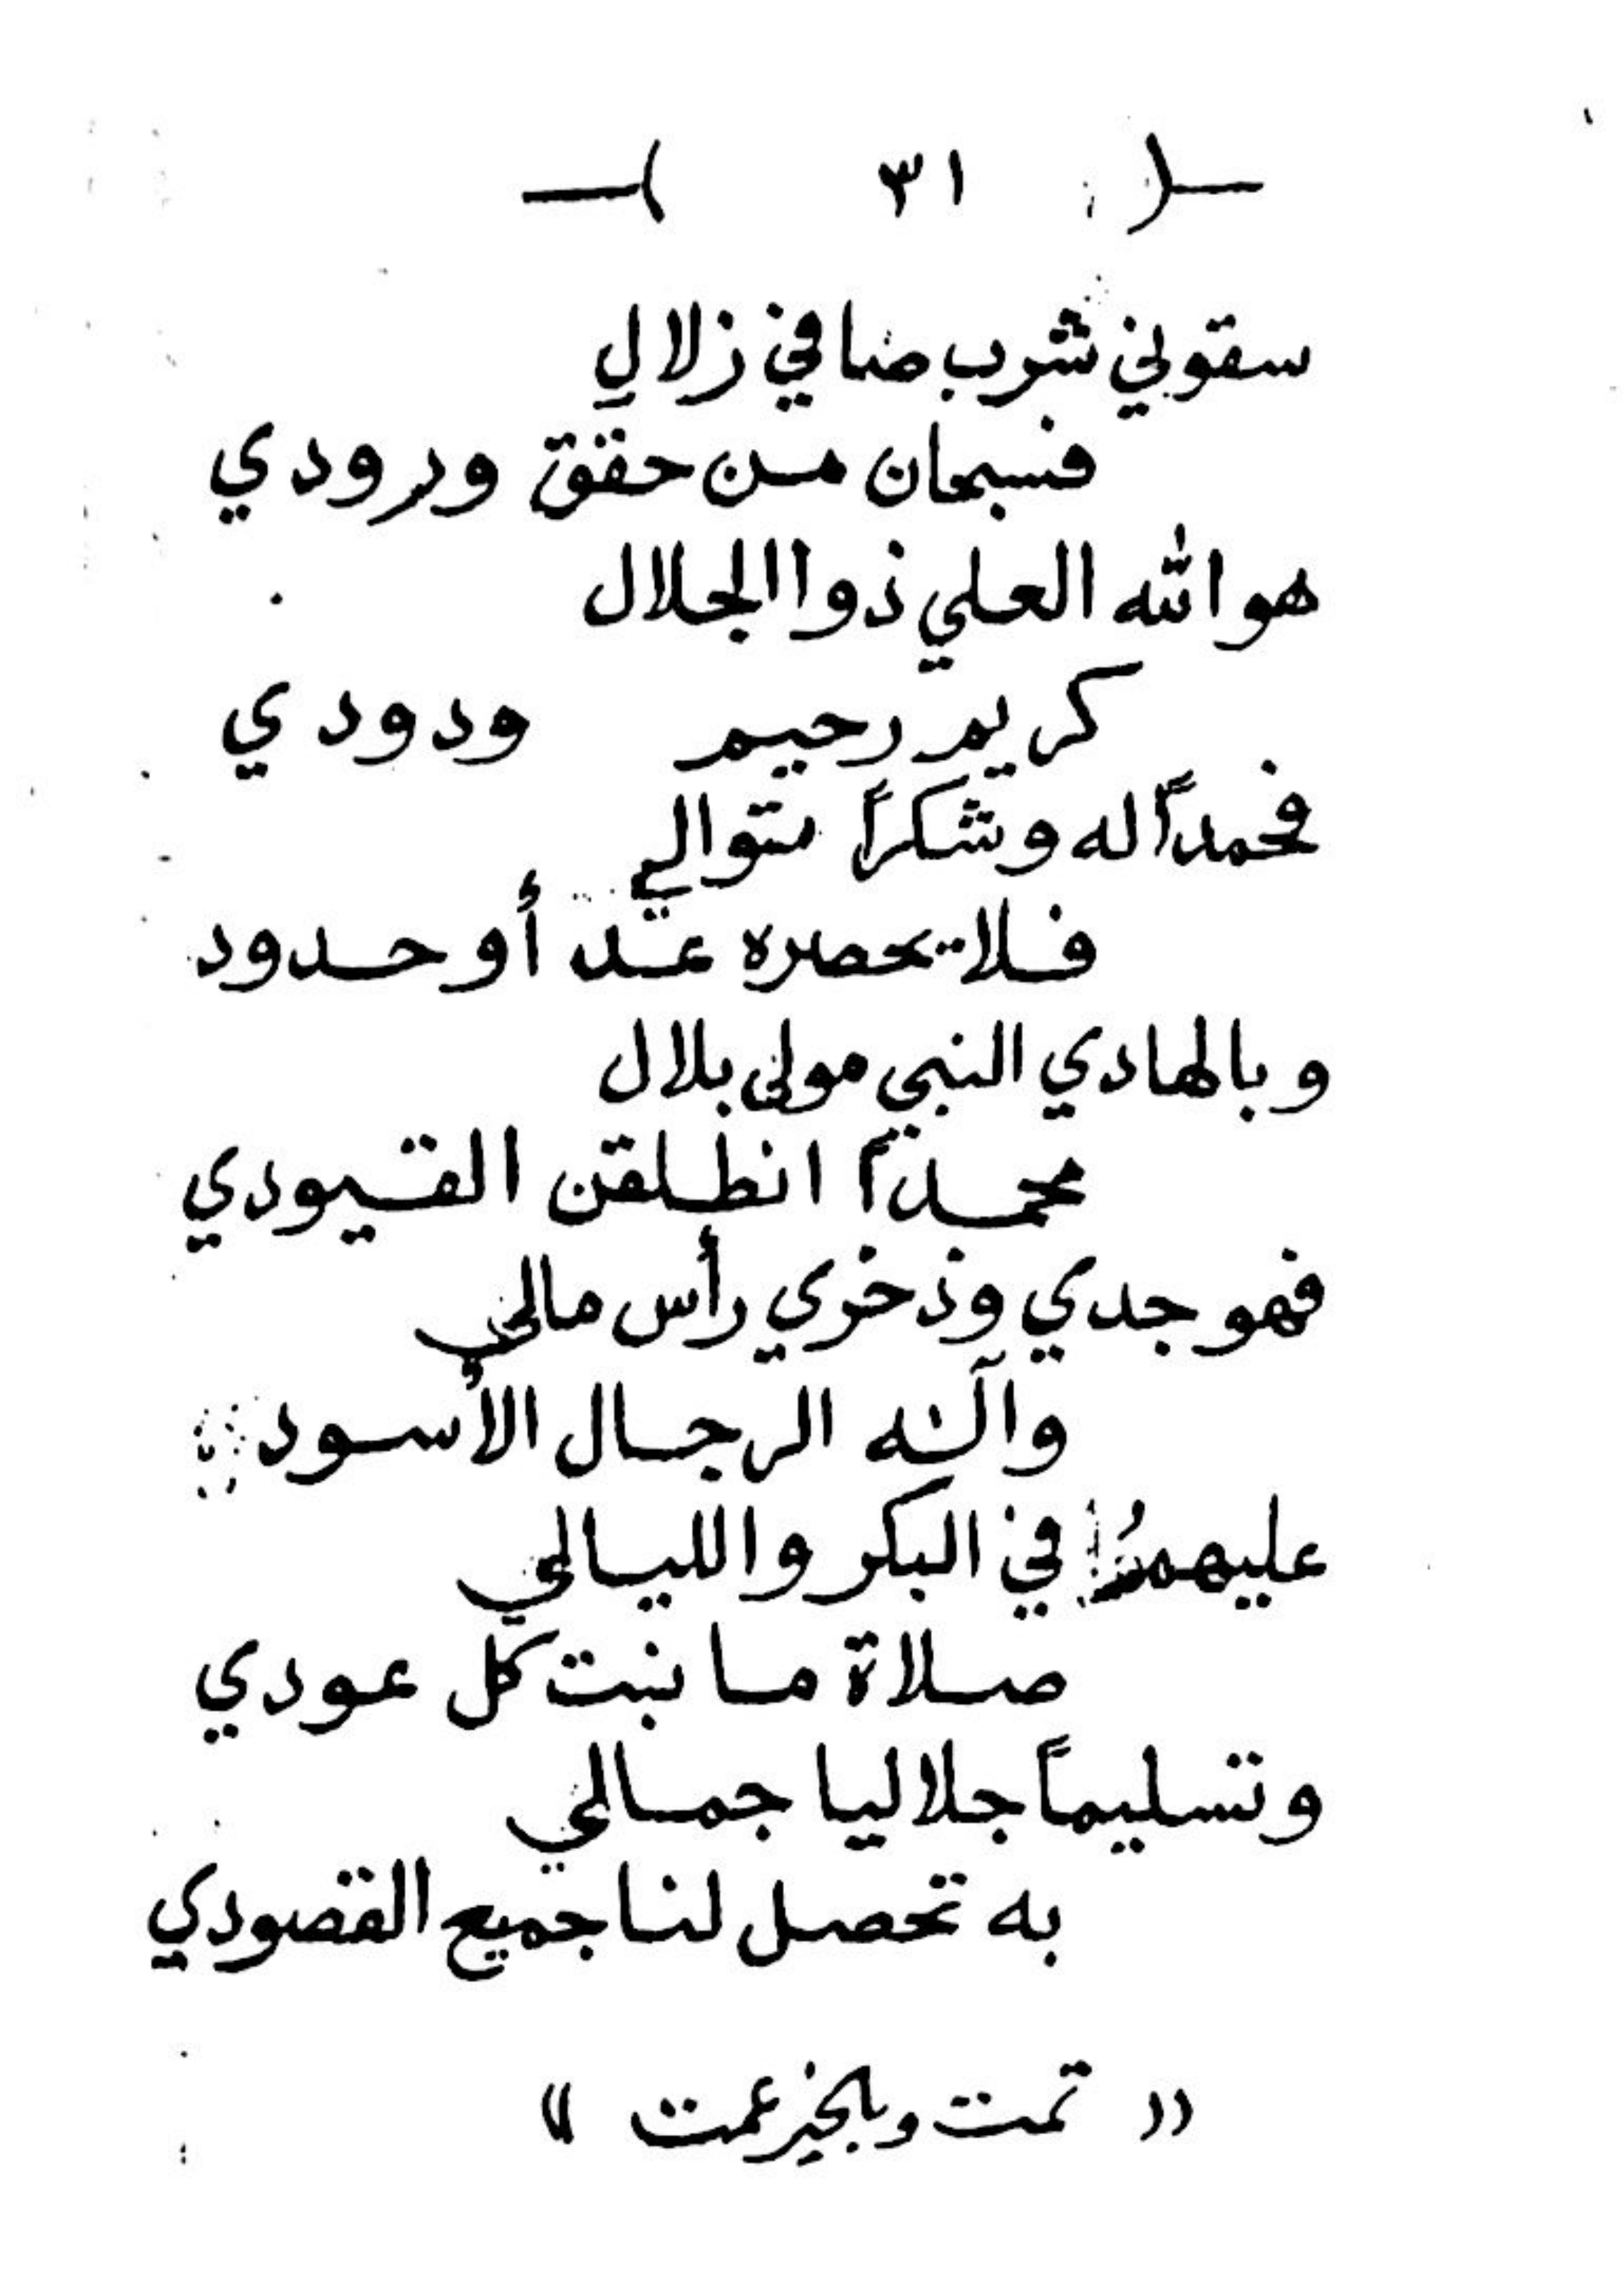 —( ٣١ )—
سقوني شرب صافي زلالٍ
فسبحان من حقق ورودي
هو الله العلي ذوا الجلال
كريم رحيم ودودي
فحمداً له وشكراً متوالي
فلا يحصره عد أو حدود
وبالهادي النبي مولى بلال
محمد انطلقن القيودي
فهو جدي وذخري رأس مالي
وآله الرجال الأسود
عليهم في البكر والليالي
صلاة ما نبت كل عودي
وتسليماً جلاليا جمالي
به تحصل لنا جميع القصودي
(( تمت وبالخير عمت ))